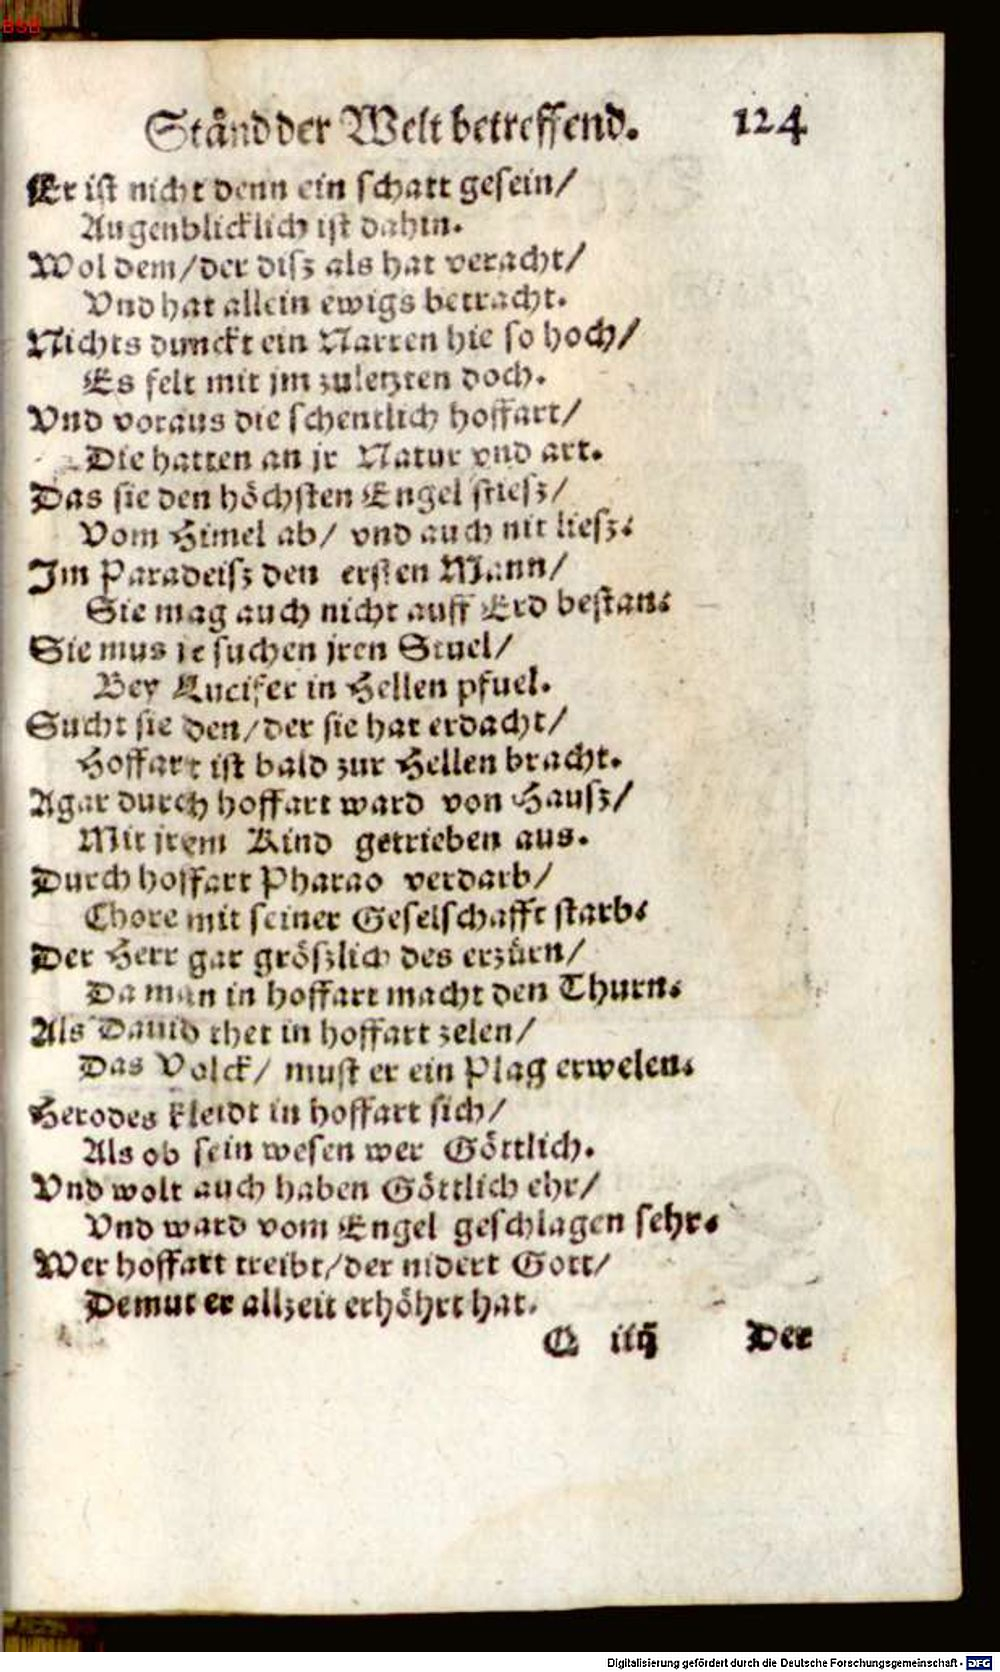 BSB
Ständ der Welt betreffend. 124
Er ist nicht denn ein schatt gesein/
Augenblicklich ist dahin.
Wol dem/der disz als hat veracht/
Vnd hat allein ewigs betracht.
Nichts dunckt ein Narren hie so hoch/
Es felt mit jm zuletzten doch.
Vnd voraus die schentlich hoffart/
Die hatten an jr Natur vnd art.
Das sie den höchsten Engel stiesz/
Vom Himel ab/ vnd auch nit liesz.
Im Paradeisz den ersten Mann/
Sie mag auch nicht auff Erd bestan.
Sie mus je suchen jren Stuel/
Bey Lucifer in Hellen pfuel.
Sucht sie den/der sie hat erdacht/
Hoffart ist bald zur Hellen bracht.
Agar durch hoffart ward von Hausz/
Mit jrem Kind getrieben aus.
Durch hoffart Pharao verdarb/
Chore mit seiner Geselschafft starb.
Der Herr gar gröszlich des erzürn/
Da man in hoffart macht den Thurn.
Als Dauid thet in hoffart zelen/
Das Volck/ must er ein Plag erwelen.
Herodes kleidt in hoffart sich/
Als ob sein wesen wer Göttlich.
Vnd wolt auch haben Göttlich ehr/
Vnd ward vom Engel geschlagen sehr.
Wer hoffart treibt/der nidert Gott/
Demut er allzeit erhöhrt hat.
Q iiij Der
Digitalisierung gefördert durch die Deutsche Forschungsgemeinschaft - DFG